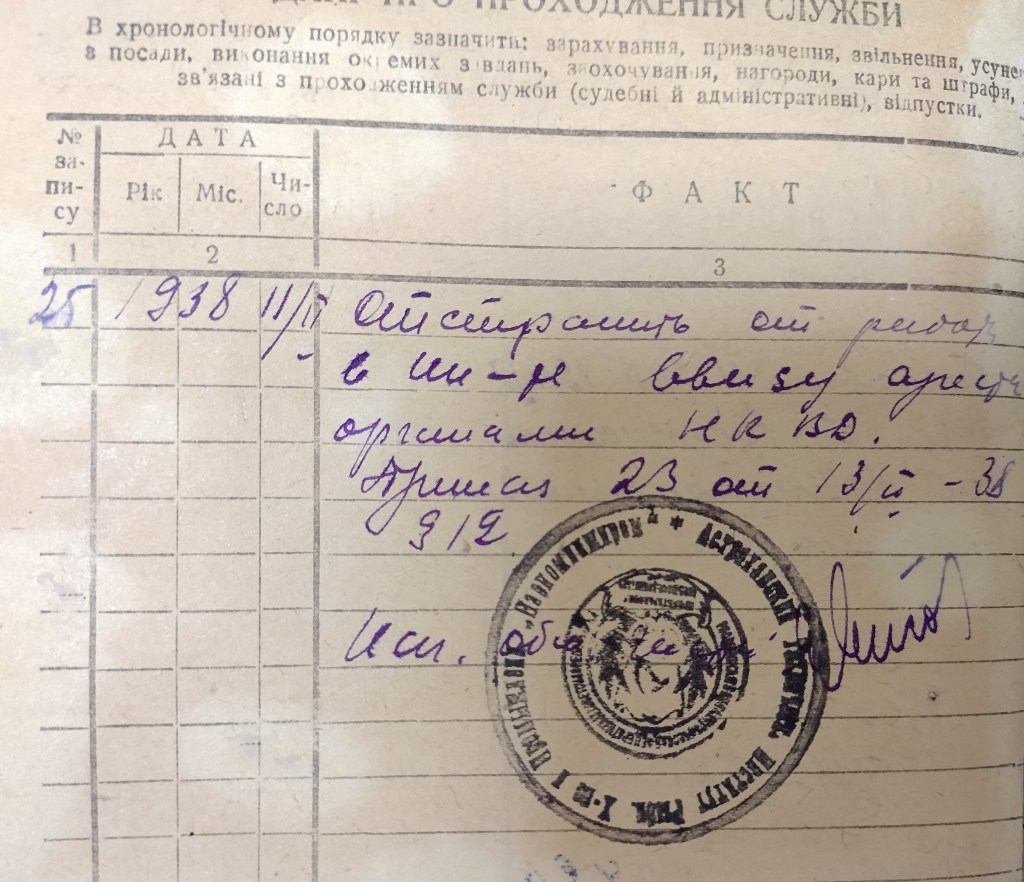 ПРО ПРОХОДЖЕННЯ СЛУЖБИ
В хронологічному порядку зазначити: зарахування, призначення, звільнення, усуне
з посади, виконання окремих завдань, заохочування, нагороди, кари та штрафи,
зв'язані з проходженням служби (судебні й адміністративні), відпустки.
№ за- пи- су
ДАТА
Рік Міс. Чи- сло
ФАКТ
1 2 3
25 1938 11/II Отстранить от работ
в ин-те ввиду арест
органами НКВД.
Приказ 23 от 13/II - 38
§ 12
Исп. об
Астраханский Техническ. Институт Рыбн. Х-ва и Промышленн. "Наркомпищпром" *